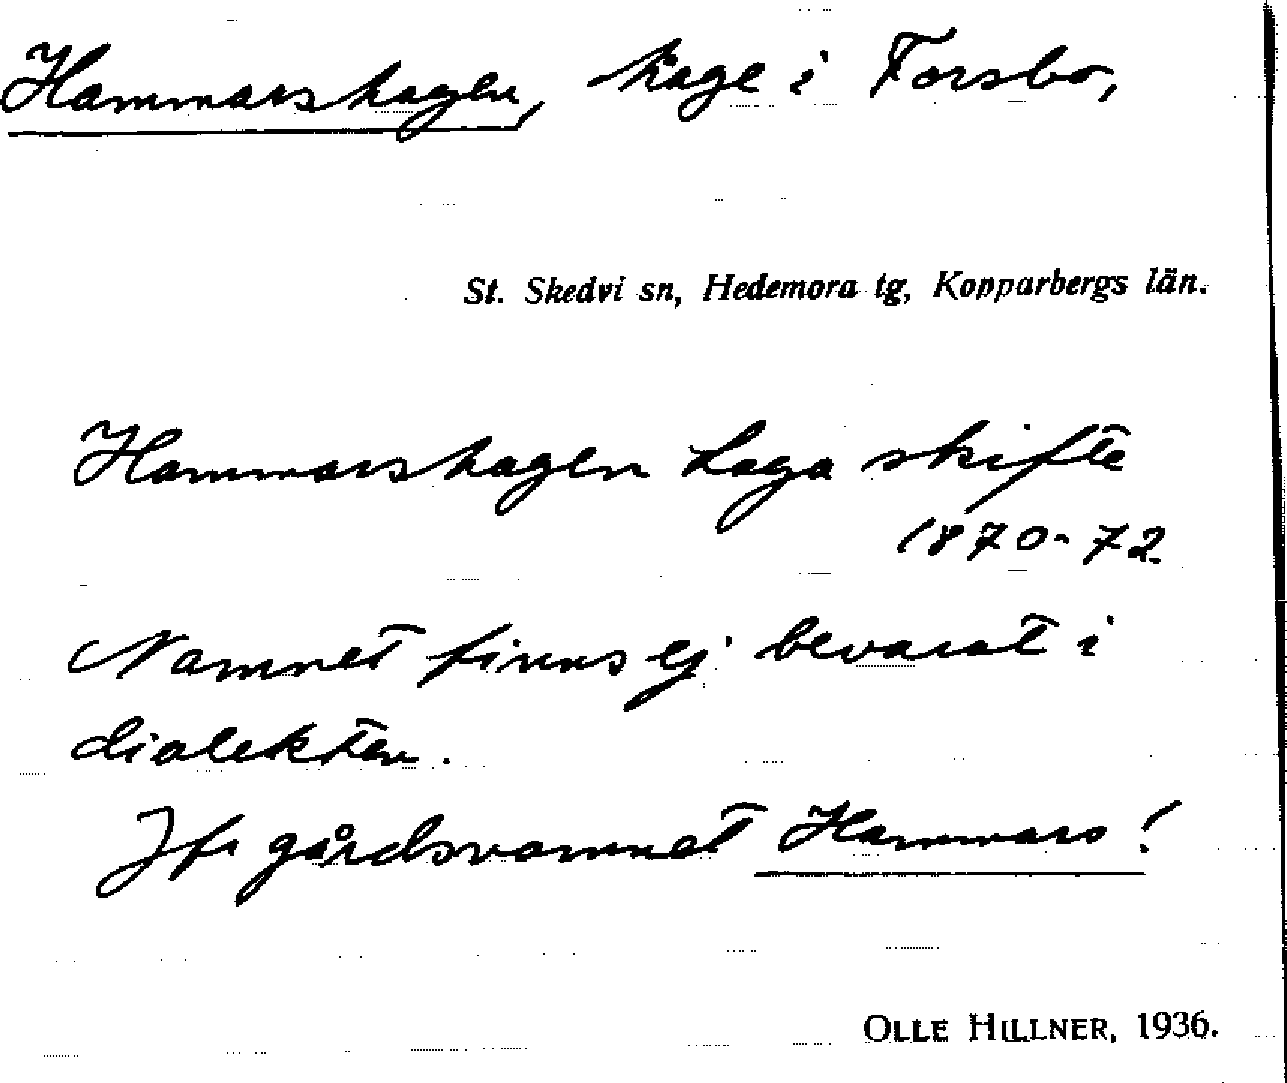 Hammarshagen, hage i Forsbo,
St. Skedvi sn, Hedemora tg, Kopparbergs län.
Hammarshagen Laga skifte
1870-72
Namnet finns ej bevarat i
dialekten.
Jfr gårdsnamnet Hammars!
OLLE HILLNER, 1936.